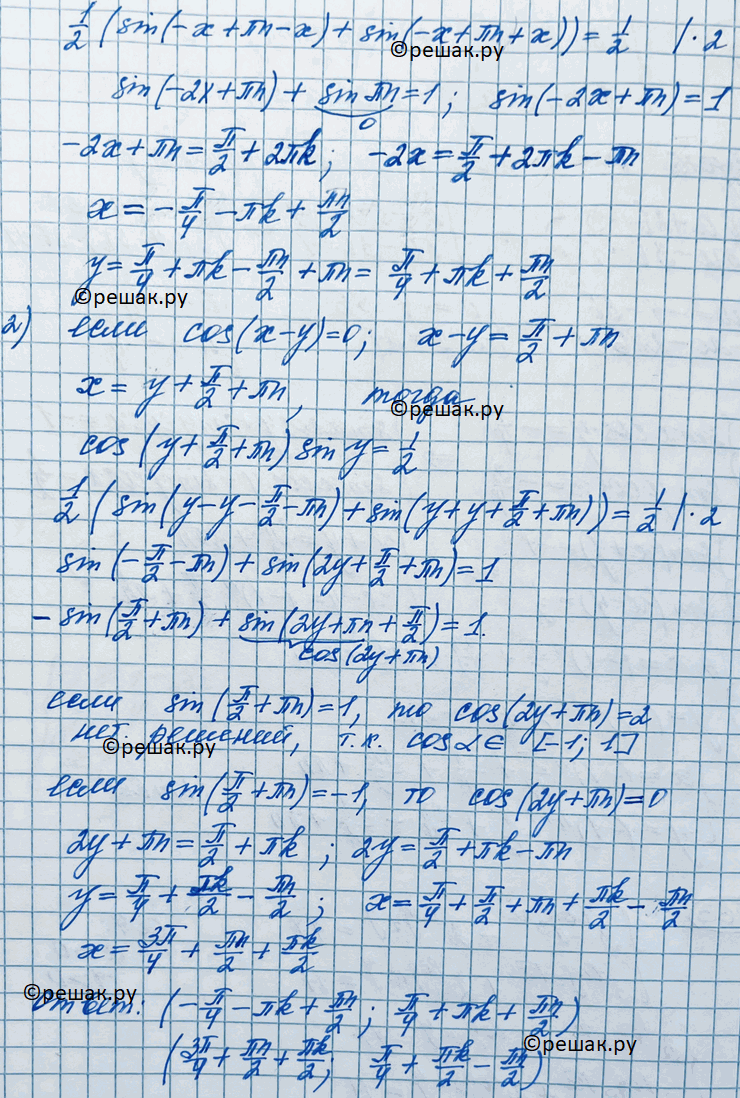 1/2 (sin(-x+πn-x) + sin(-x+πn+x)) = 1/2 | · 2
©решак.ру
sin(-2x+πn) + sin πn = 1; sin(-2x+πn) = 1
0
-2x+πn = π/2 + 2πk; -2x = π/2 + 2πk - πn
x = -π/4 - πk + πn/2
y = π/4 + πk - πn/2 + πn = π/4 + πk + πn/2
©решак.ру
2) если cos(x-y)=0; x-y = π/2 + πn
x = y + π/2 + πn, тогда
©решак.ру
cos(y + π/2 + πn) sin y = 1/2
1/2 (sin(y-y-π/2-πn) + sin(y+y+π/2+πn)) = 1/2 | · 2
sin(-π/2-πn) + sin(2y+π/2+πn) = 1
- sin(π/2+πn) + sin(2y+πn+π/2) = 1.
cos(2y+πn)
если sin(π/2+πn)=1, то cos(2y+πn)=2
нет решений, т.к. cos α ∈ [-1; 1]
©решак.ру
если sin(π/2+πn)=-1, то cos(2y+πn)=0
2y+πn = π/2 + πk; 2y = π/2 + πk - πn
y = π/4 + πk/2 - πn/2; x = π/4 + π/2 + πn + πk/2 - πn/2
x = 3π/4 + πn/2 + πk/2
©решак.ру
Ответ: (-π/4 - πk + πn/2; π/4 + πk + πn/2)
©решак.ру
(3π/4 + πn/2 + πk/2; π/4 + πk/2 - πn/2)